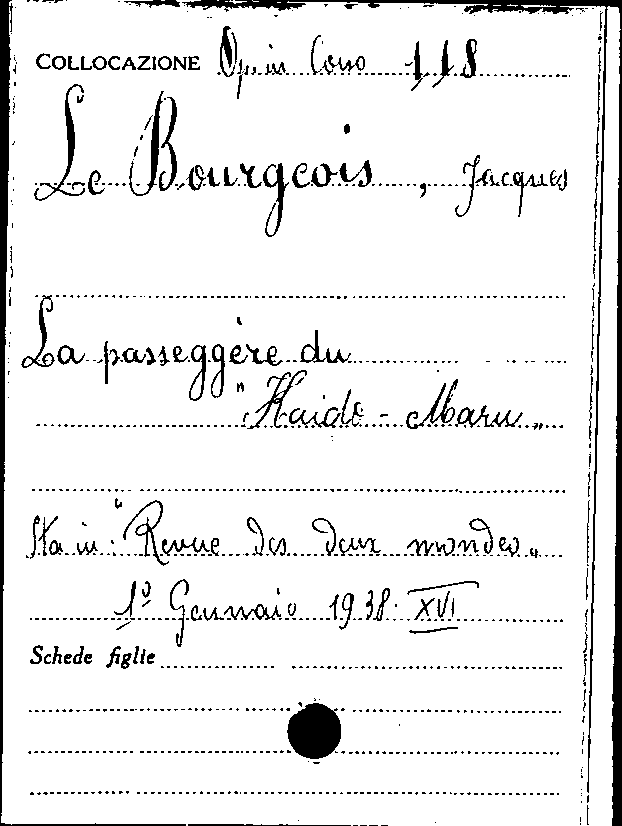 COLLOCAZIONE Op. in Corso 118
Le Bourgeois, Jacques
La passeggère du
"Haido - Maru"
Sta in: "Revue des deux mondes"
1º Gennaio 1938. XVI
Schede figlie